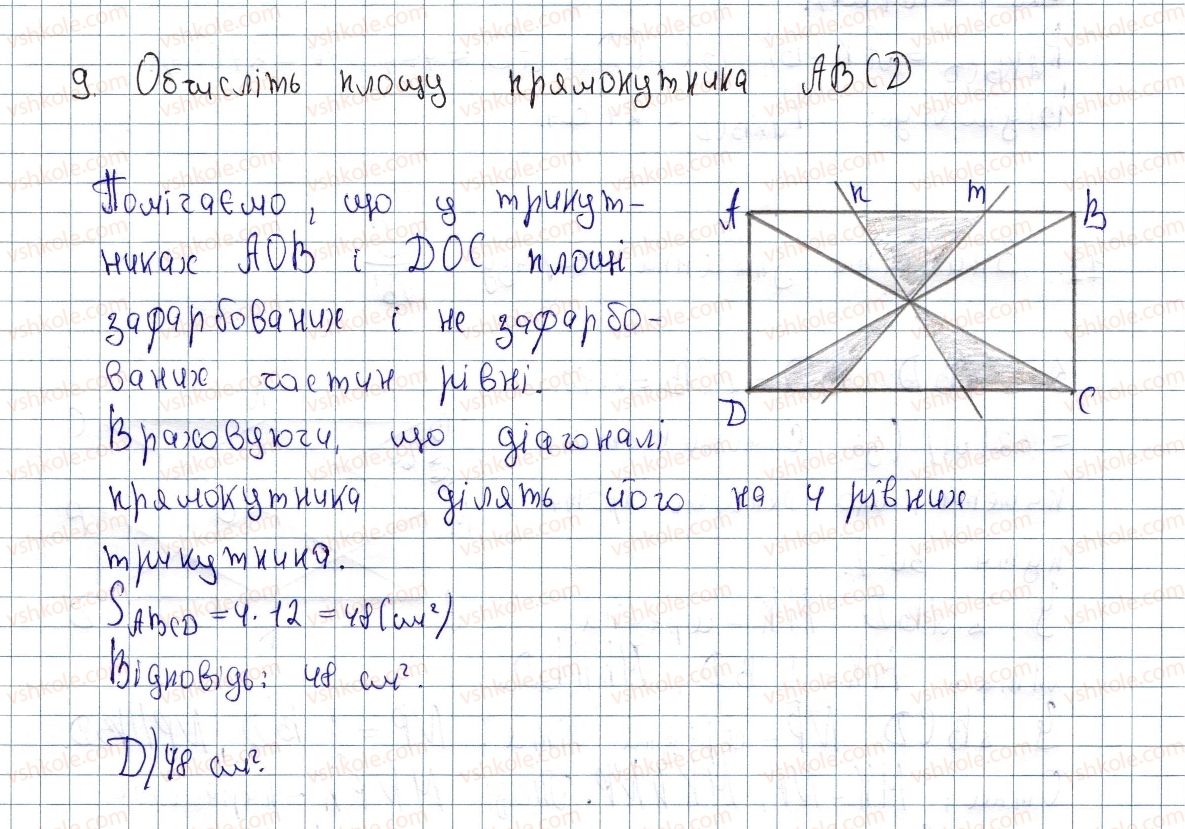 9. Обчисліть площу прямокутника ABCD
Помічаємо, що у трикут-
никах AOB і DOC площі
зафарбованих і не зафарбо-
ваних частин рівні.
Враховуючи, що діагоналі
прямокутника ділять його на 4 рівних
трикутника.
S ABCD = 4 · 12 = 48 (см²)
Відповідь: 48 см².
D) 48 см².
A n m B
D C
vshkole.com